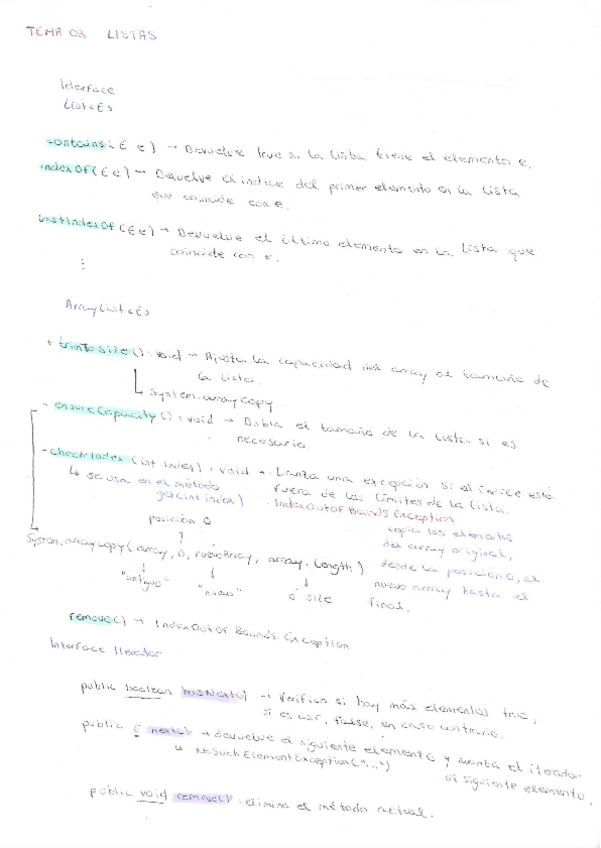 TEMA 03 LISTAS
Interface
List<E>
contains(E e) → Devuelve true si la lista tiene el elemento e.
indexOf(E e) → Devuelve el índice del primer elemento en la lista
que coincide con e.
lastIndexOf(E e) → Devuelve el último elemento en la lista que
coincide con e.
⋮
ArrayList<E>
+ trimToSize() : void → Ajusta la capacidad del array al tamaño de
la lista.
System.arraycopy
- ensureCapacity() : void → Dobla el tamaño de la lista si es
necesario
- checkIndex (int index) : void → Lanza una excepción si el índice está
fuera de los límites de la lista.
↳ se usa en el método
get(int index)
: IndexOutOfBoundsException
posición 0
System.arraycopy (array, 0, nuevoArray, array.length)
"antiguo"
"nuevo"
ó size
copia los elementos
del array original,
desde la posición 0, al
nuevo array hasta el
final.
remove() → IndexOutOfBoundsException
Interface Iterador
public boolean hasNext() → Verifica si hay más elementos true,
si es así, false, en caso contrario.
public E next() → devuelve el siguiente elemento y avanza el iterador
al siguiente elemento.
↳ NoSuchElementException("...")
public void remove() : elimina el método actual.